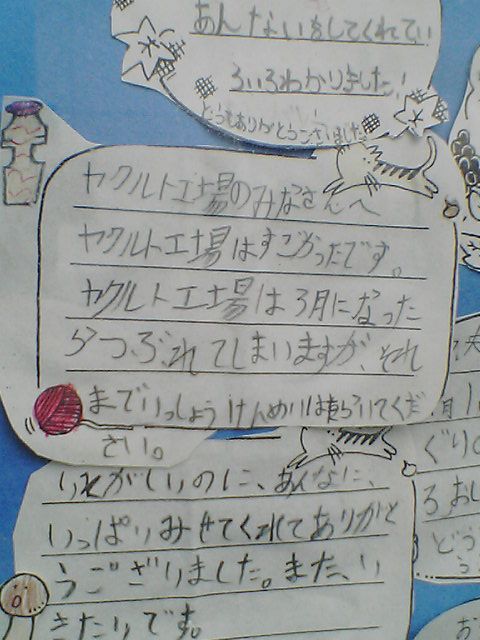 あんないをしてくれてい
ろいろわかりました!
どうもありがとうございました
ヤクルト工場のみなさんへ
ヤクルト工場はすごかったです。
ヤクルト工場は3月になった
らつぶれてしまいますが、それ
までいっしょうけんめいはたらいてくだ
さい。
いそがしいのに、あんなに、
いっぱいみせてくれてありがと
うございました。また、い
きたいです。
ぐりの
ろおし
どう